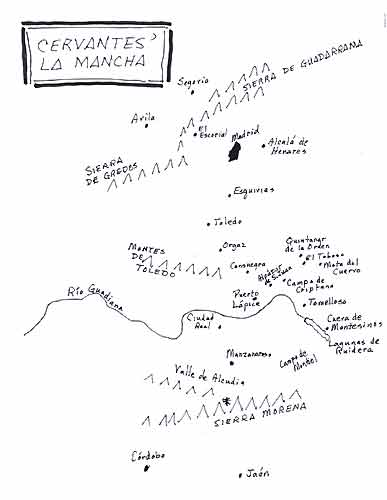 CERVANTES'
LA MANCHA
Segovia
SIERRA DE GUADARRAMA
Avila
El
Escorial
Madrid
Alcalá de
Henares
SIERRA
DE GREDOS
Esquivias
Toledo
MONTES
DE
TOLEDO
Orgaz
Consuegra
Alcázar
de S. Juan
Quintanar
de la Orden
El Toboso
Mota del
Cuervo
Campo de
Criptana
Río Guadiana
Puerto
Lápice
Tomelloso
Ciudad
Real
Cueva de
Montesinos
Lagunas de
Ruidera
Manzanares
Campo de
Montiel
Valle de Alcudia
SIERRA MORENA
Córdoba
Jaén